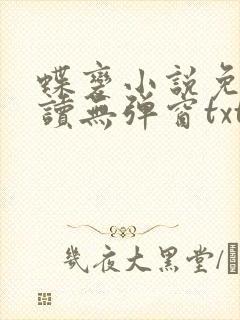 蝶变小说免
讀無弹窗txt
幾夜大黑堂/